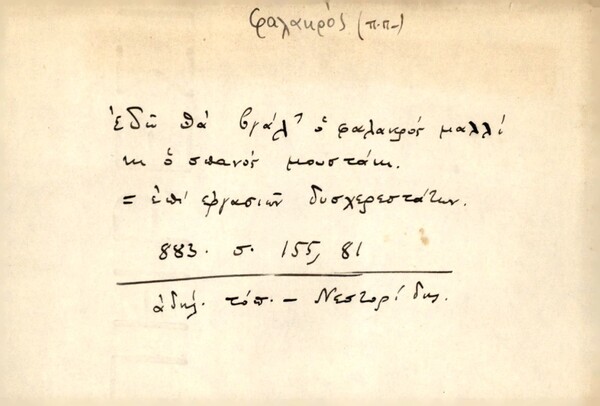 φαλακρός (π.π-)
ἐδῶ θὰ βγάλ' ὁ φαλακρός μαλλί
κι ὁ σπανός μουστάκι.
= ἐπὶ ἐργασιῶν δυσχερεστάτων.
883. σ. 155, 81
ἀδήλ. τόπ. - Νεστορίδης.